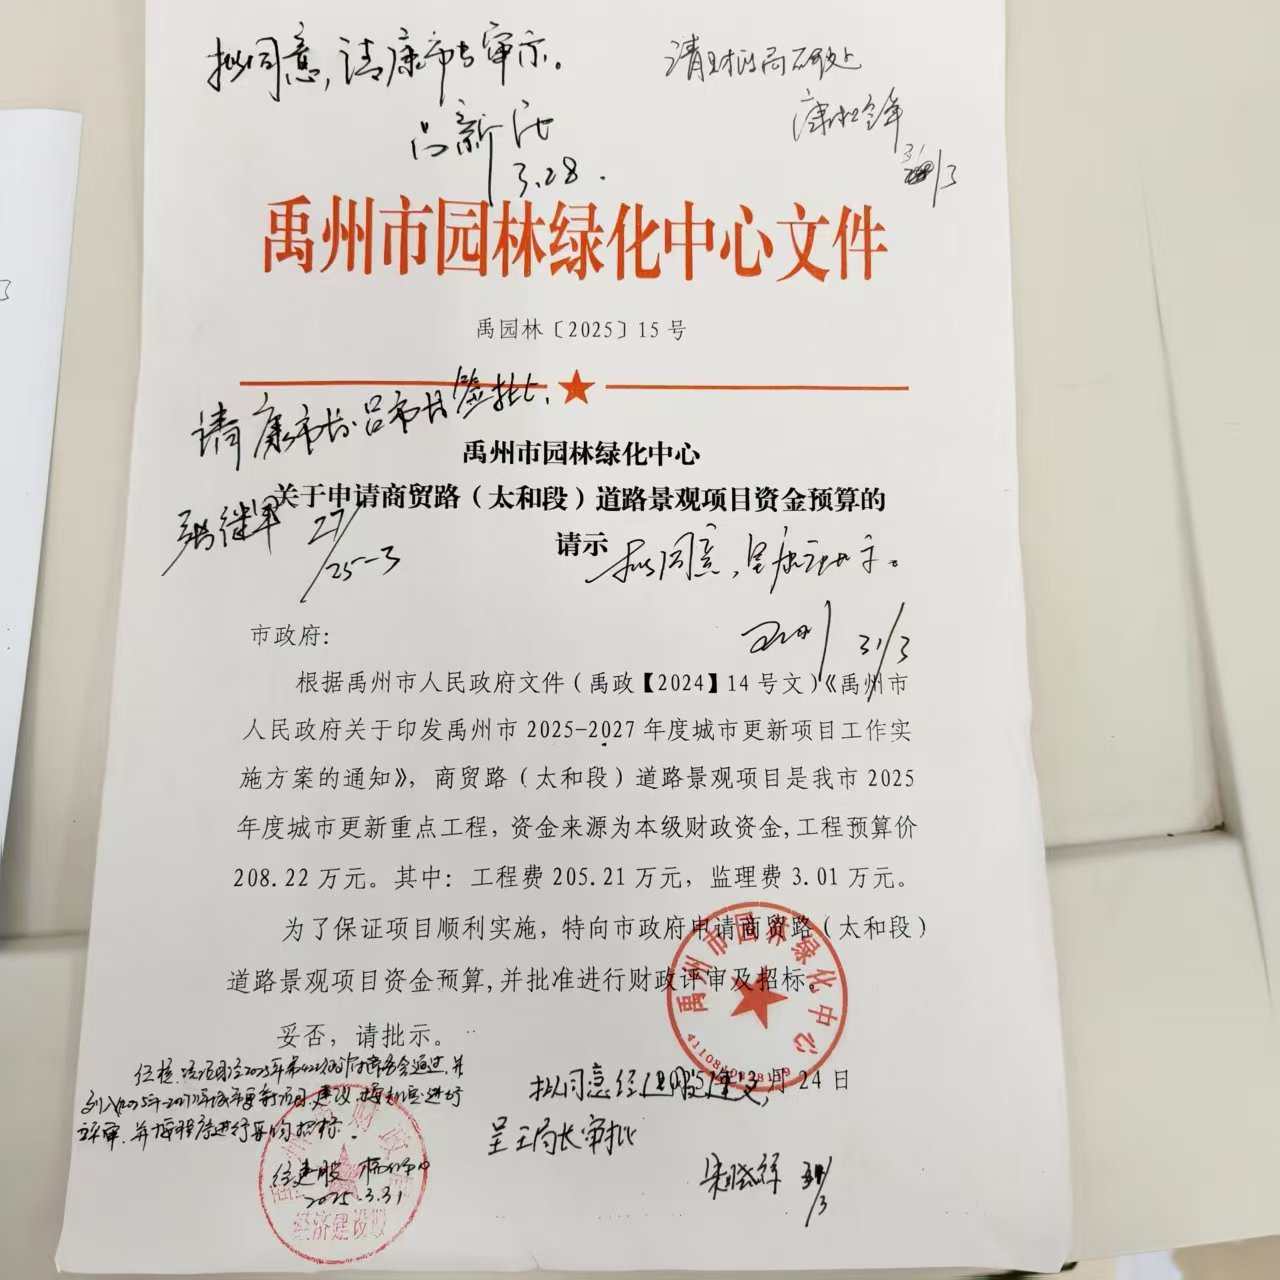 拟同意，请康市长审示。
吕新
3.28.
请财政局研处
31/3
禹州市园林绿化中心文件
禹园林〔2025〕15号
请康市长、吕市长签批、
张继军 27/25-3
禹州市园林绿化中心
关于申请商贸路（太和段）道路景观项目资金预算的
请示
拟同意，呈
31/3
市政府：
根据禹州市人民政府文件（禹政【2024】14号文）《禹州市
人民政府关于印发禹州市2025-2027年度城市更新项目工作实
施方案的通知》，商贸路（太和段）道路景观项目是我市2025
年度城市更新重点工程，资金来源为本级财政资金，工程预算价
208.22万元。其中：工程费205.21万元，监理费3.01万元。
为了保证项目顺利实施，特向市政府申请商贸路（太和段）
道路景观项目资金预算，并批准进行财政评审及招标。
妥否，请批示。
禹州市园林绿化中心
月24日
经核，该项目经2025年第 次政府常务会通过，并
列入2025年-2027年城市更新项目，建议按规定进行
评审，并按程序进行采购招标。
经建股
2025.3.31
经济建设股
拟同意经建股建文，
呈王局长审批
31/3